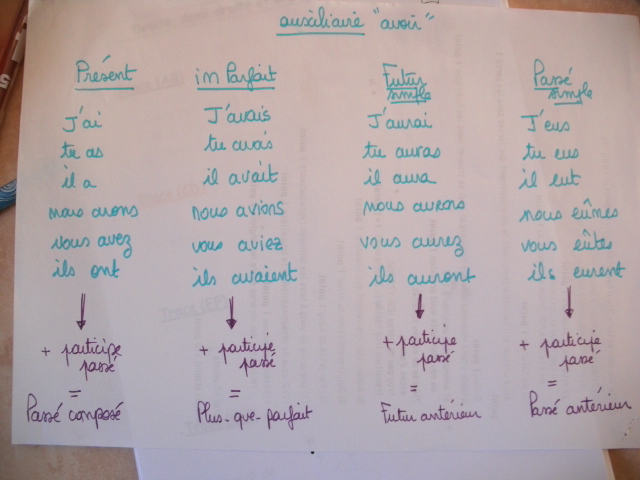 auxiliaire "avoir"
Présent
J'ai
tu as
il a
nous avons
vous avez
ils ont
+ participe
passé
=
Passé composé
imparfait
J'avais
tu avais
il avait
nous avions
vous aviez
ils avaient
+ participe
passé
=
Plus-que-parfait
Futur
simple
J'aurai
tu auras
il aura
nous aurons
vous aurez
ils auront
+ participe
passé
=
Futur antérieur
Passé
simple
J'eus
tu eus
il eut
nous eûmes
vous eûtes
ils eurent
+ participe
passé
=
Passé antérieur